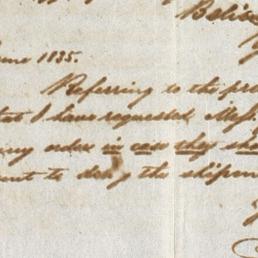 Beliz
June 1835.
Referring to the pre
that I have requested Mess.
any order in case they sho
to delay the shipmen